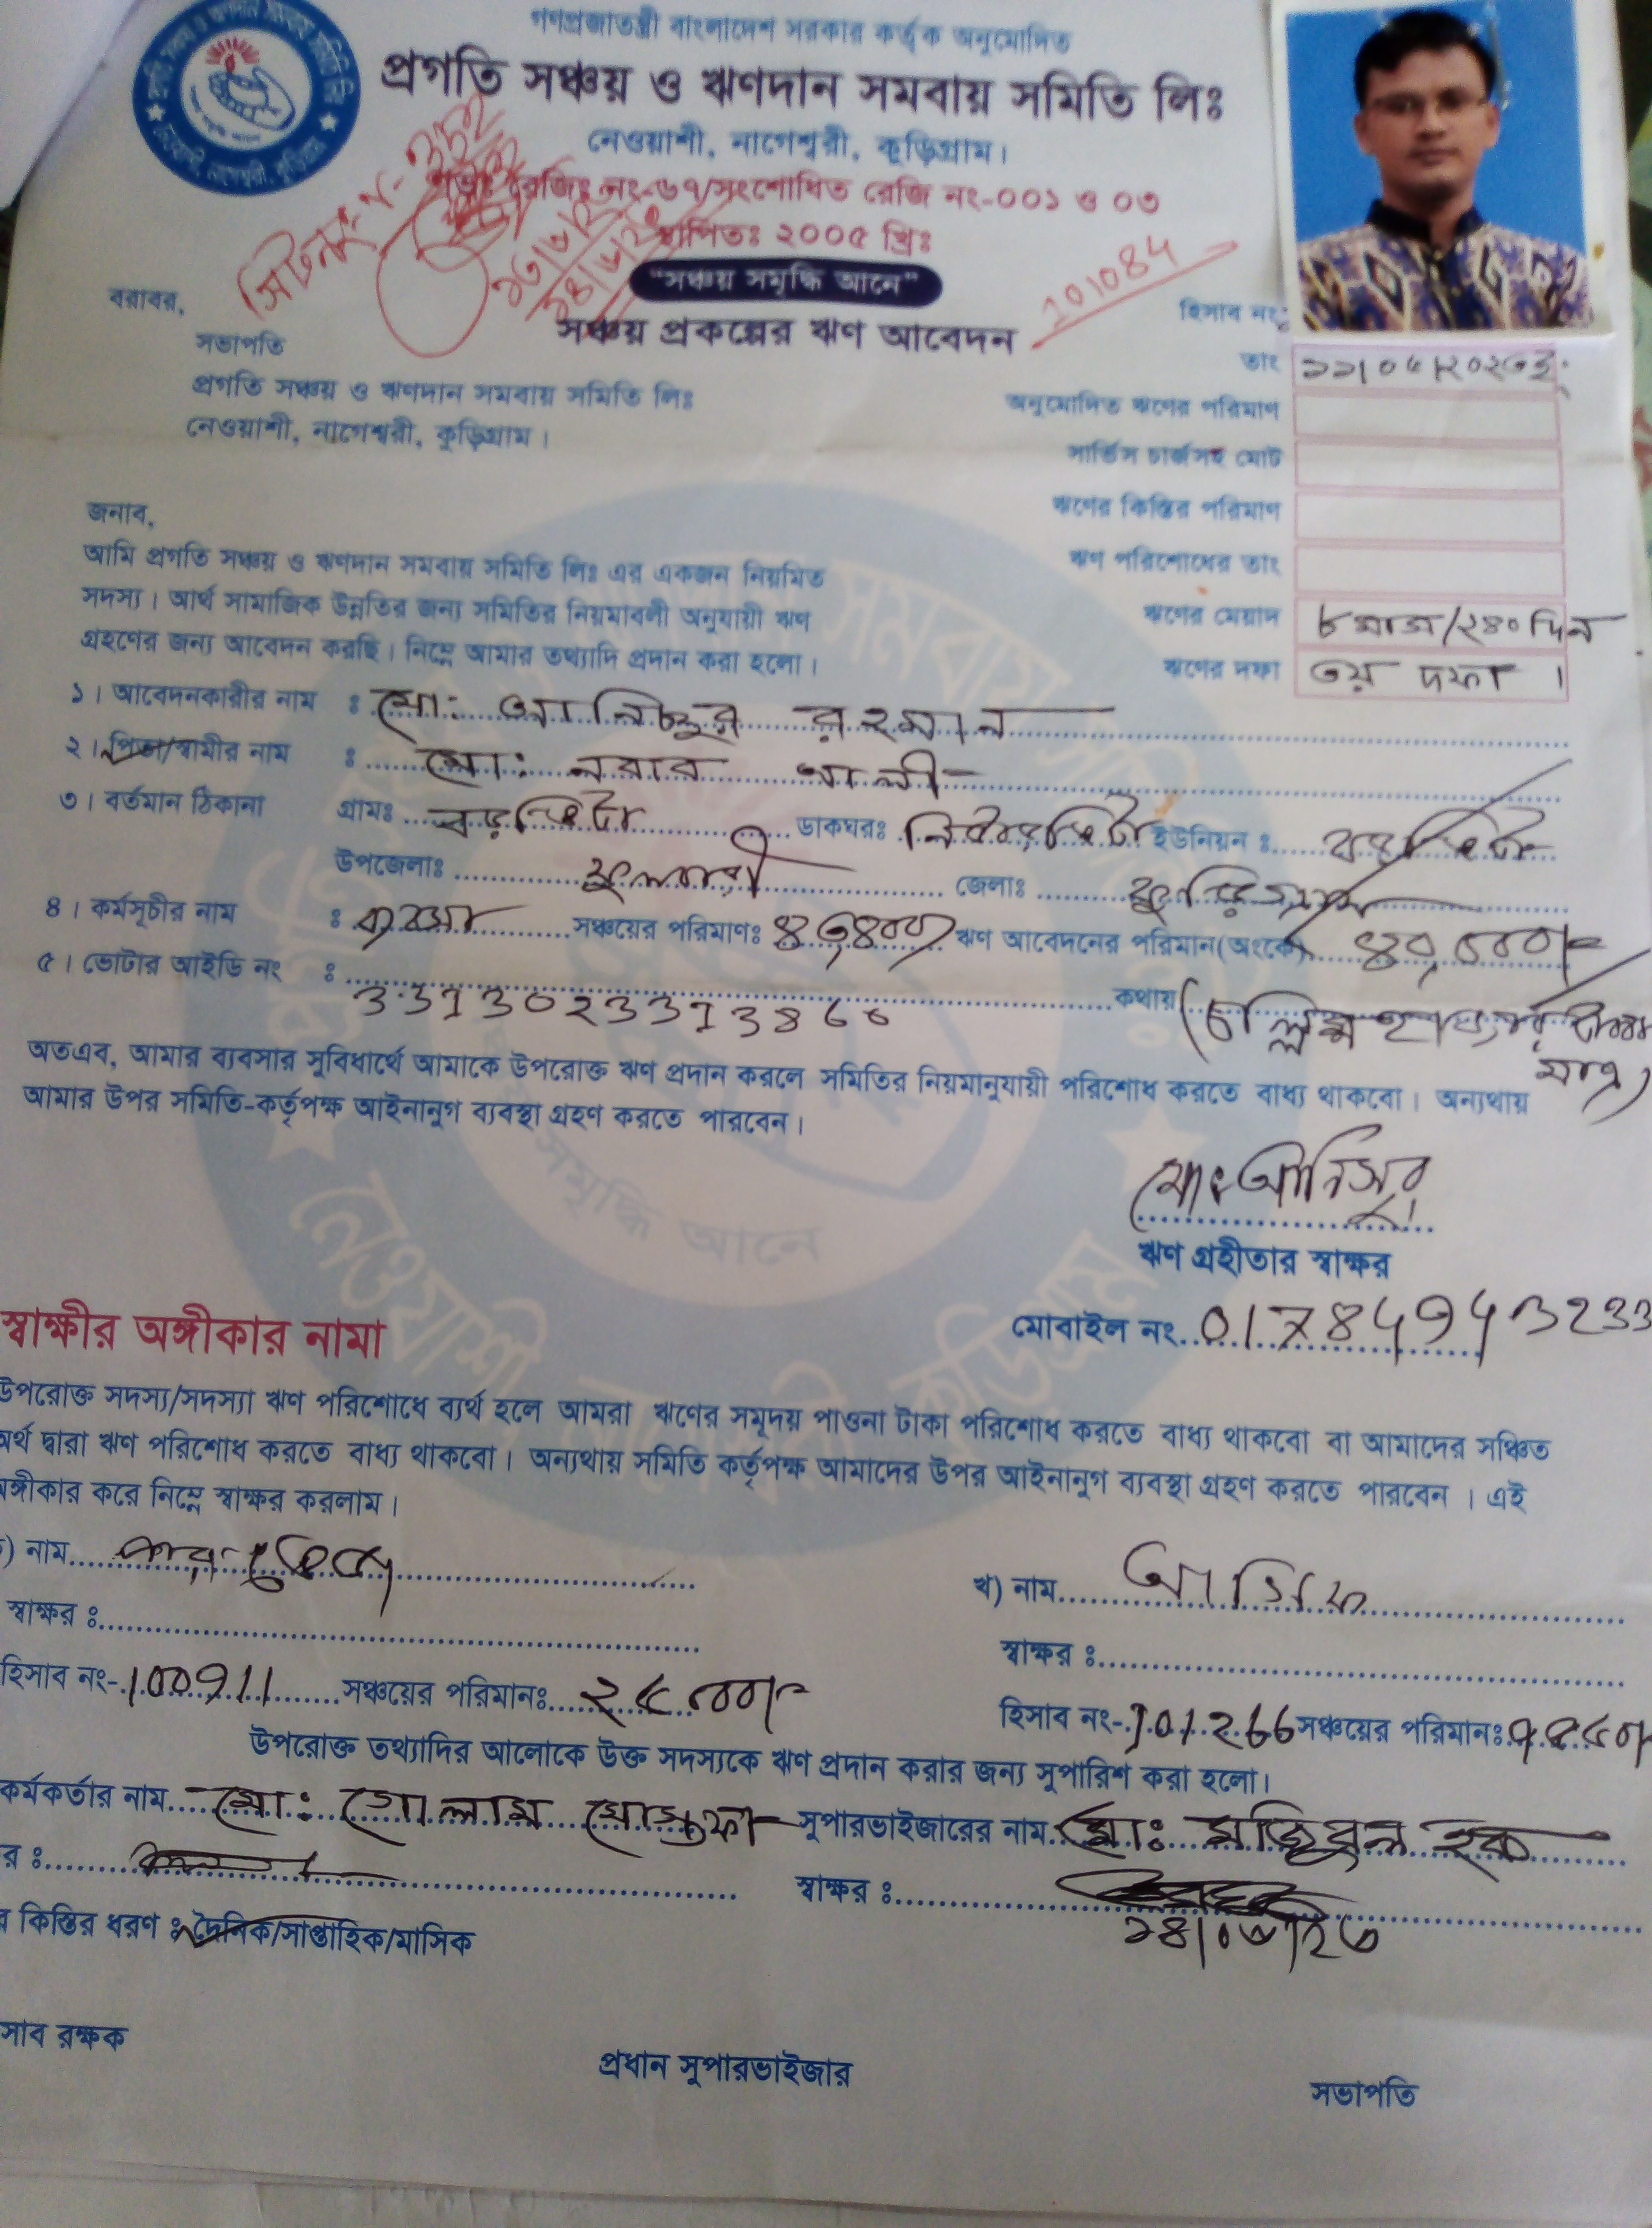 গণপ্রজাতন্ত্রী বাংলাদেশ সরকার কর্তৃক অনুমোদিত
প্রগতি সঞ্চয় ও ঋণদান সমবায় সমিতি লিঃ
নেওয়াশী, নাগেশ্বরী, কুড়িগ্রাম।
রেজিঃ নং-৬৭/সংশোধিত রেজি নং-০০১ ও ০৩
স্থাপিতঃ ২০০৫ খ্রিঃ
"সঞ্চয় সমৃদ্ধি আনে"
101084
সঞ্চয় প্রকল্পের ঋণ আবেদন
হিসাব নং
বরাবর,
সভাপতি
প্রগতি সঞ্চয় ও ঋণদান সমবায় সমিতি লিঃ
নেওয়াশী, নাগেশ্বরী, কুড়িগ্রাম।
তাং ১১/০৫/২০২৩ইং
অনুমোদিত ঋণের পরিমাণ
সার্ভিস চার্জসহ মোট
ঋণের কিস্তির পরিমাণ
ঋণ পরিশোধের তাং
ঋণের মেয়াদ ৮ মাস/২৪০ দিন
ঋণের দফা ৩য় দফা।
জনাব,
আমি প্রগতি সঞ্চয় ও ঋণদান সমবায় সমিতি লিঃ এর একজন নিয়মিত
সদস্য। আর্থ সামাজিক উন্নতির জন্য সমিতির নিয়মাবলী অনুযায়ী ঋণ
গ্রহণের জন্য আবেদন করছি। নিম্নে আমার তথ্যাদি প্রদান করা হলো।
১। আবেদনকারীর নাম : মো: আনিছুর রহমান
২। পিতা/স্বামীর নাম : মো: নবাব আলী
৩। বর্তমান ঠিকানা গ্রামঃ বড়ভিটা ডাকঘরঃ ইউনিয়ন ঃ বড়ভিটা
উপজেলাঃ ফুলবাড়ী জেলাঃ কুড়িগ্রাম
৪। কর্মসূচীর নাম ঃ ব্যবসা সঞ্চয়ের পরিমাণঃ ৪৩,৪০০/ ঋণ আবেদনের পরিমান(অংকে) ৪০,০০০/=
৫। ভোটার আইডি নং ঃ কথায় (চল্লিশ হাজার টাকা মাত্র)
অতএব, আমার ব্যবসার সুবিধার্থে আমাকে উপরোক্ত ঋণ প্রদান করলে সমিতির নিয়মানুযায়ী পরিশোধ করতে বাধ্য থাকবো। অন্যথায়
আমার উপর সমিতি-কর্তৃপক্ষ আইনানুগ ব্যবস্থা গ্রহণ করতে পারবেন।
মোঃ আনিসুর
ঋণ গ্রহীতার স্বাক্ষর
মোবাইল নং
স্বাক্ষীর অঙ্গীকার নামা
উপরোক্ত সদস্য/সদস্যা ঋণ পরিশোধে ব্যর্থ হলে আমরা ঋণের সমূদয় পাওনা টাকা পরিশোধ করতে বাধ্য থাকবো বা আমাদের সঞ্চিত
অর্থ দ্বারা ঋণ পরিশোধ করতে বাধ্য থাকবো। অন্যথায় সমিতি কর্তৃপক্ষ আমাদের উপর আইনানুগ ব্যবস্থা গ্রহণ করতে পারবেন। এই
অঙ্গীকার করে নিম্নে স্বাক্ষর করলাম।
) নাম
খ) নাম
স্বাক্ষর ঃ
স্বাক্ষর ঃ
হিসাব নং-100911 সঞ্চয়ের পরিমানঃ ২৫০০০/=
হিসাব নং-101266 সঞ্চয়ের পরিমানঃ
উপরোক্ত তথ্যাদির আলোকে উক্ত সদস্যকে ঋণ প্রদান করার জন্য সুপারিশ করা হলো।
কর্মকর্তার নাম মো: গোলাম মোস্তফা সুপারভাইজারের নাম মোঃ মজিবুল হক
র ঃ
স্বাক্ষর ঃ
১৪/০৬/২৩
র কিস্তির ধরণ ঃ দৈনিক/সাপ্তাহিক/মাসিক
সাব রক্ষক
প্রধান সুপারভাইজার
সভাপতি